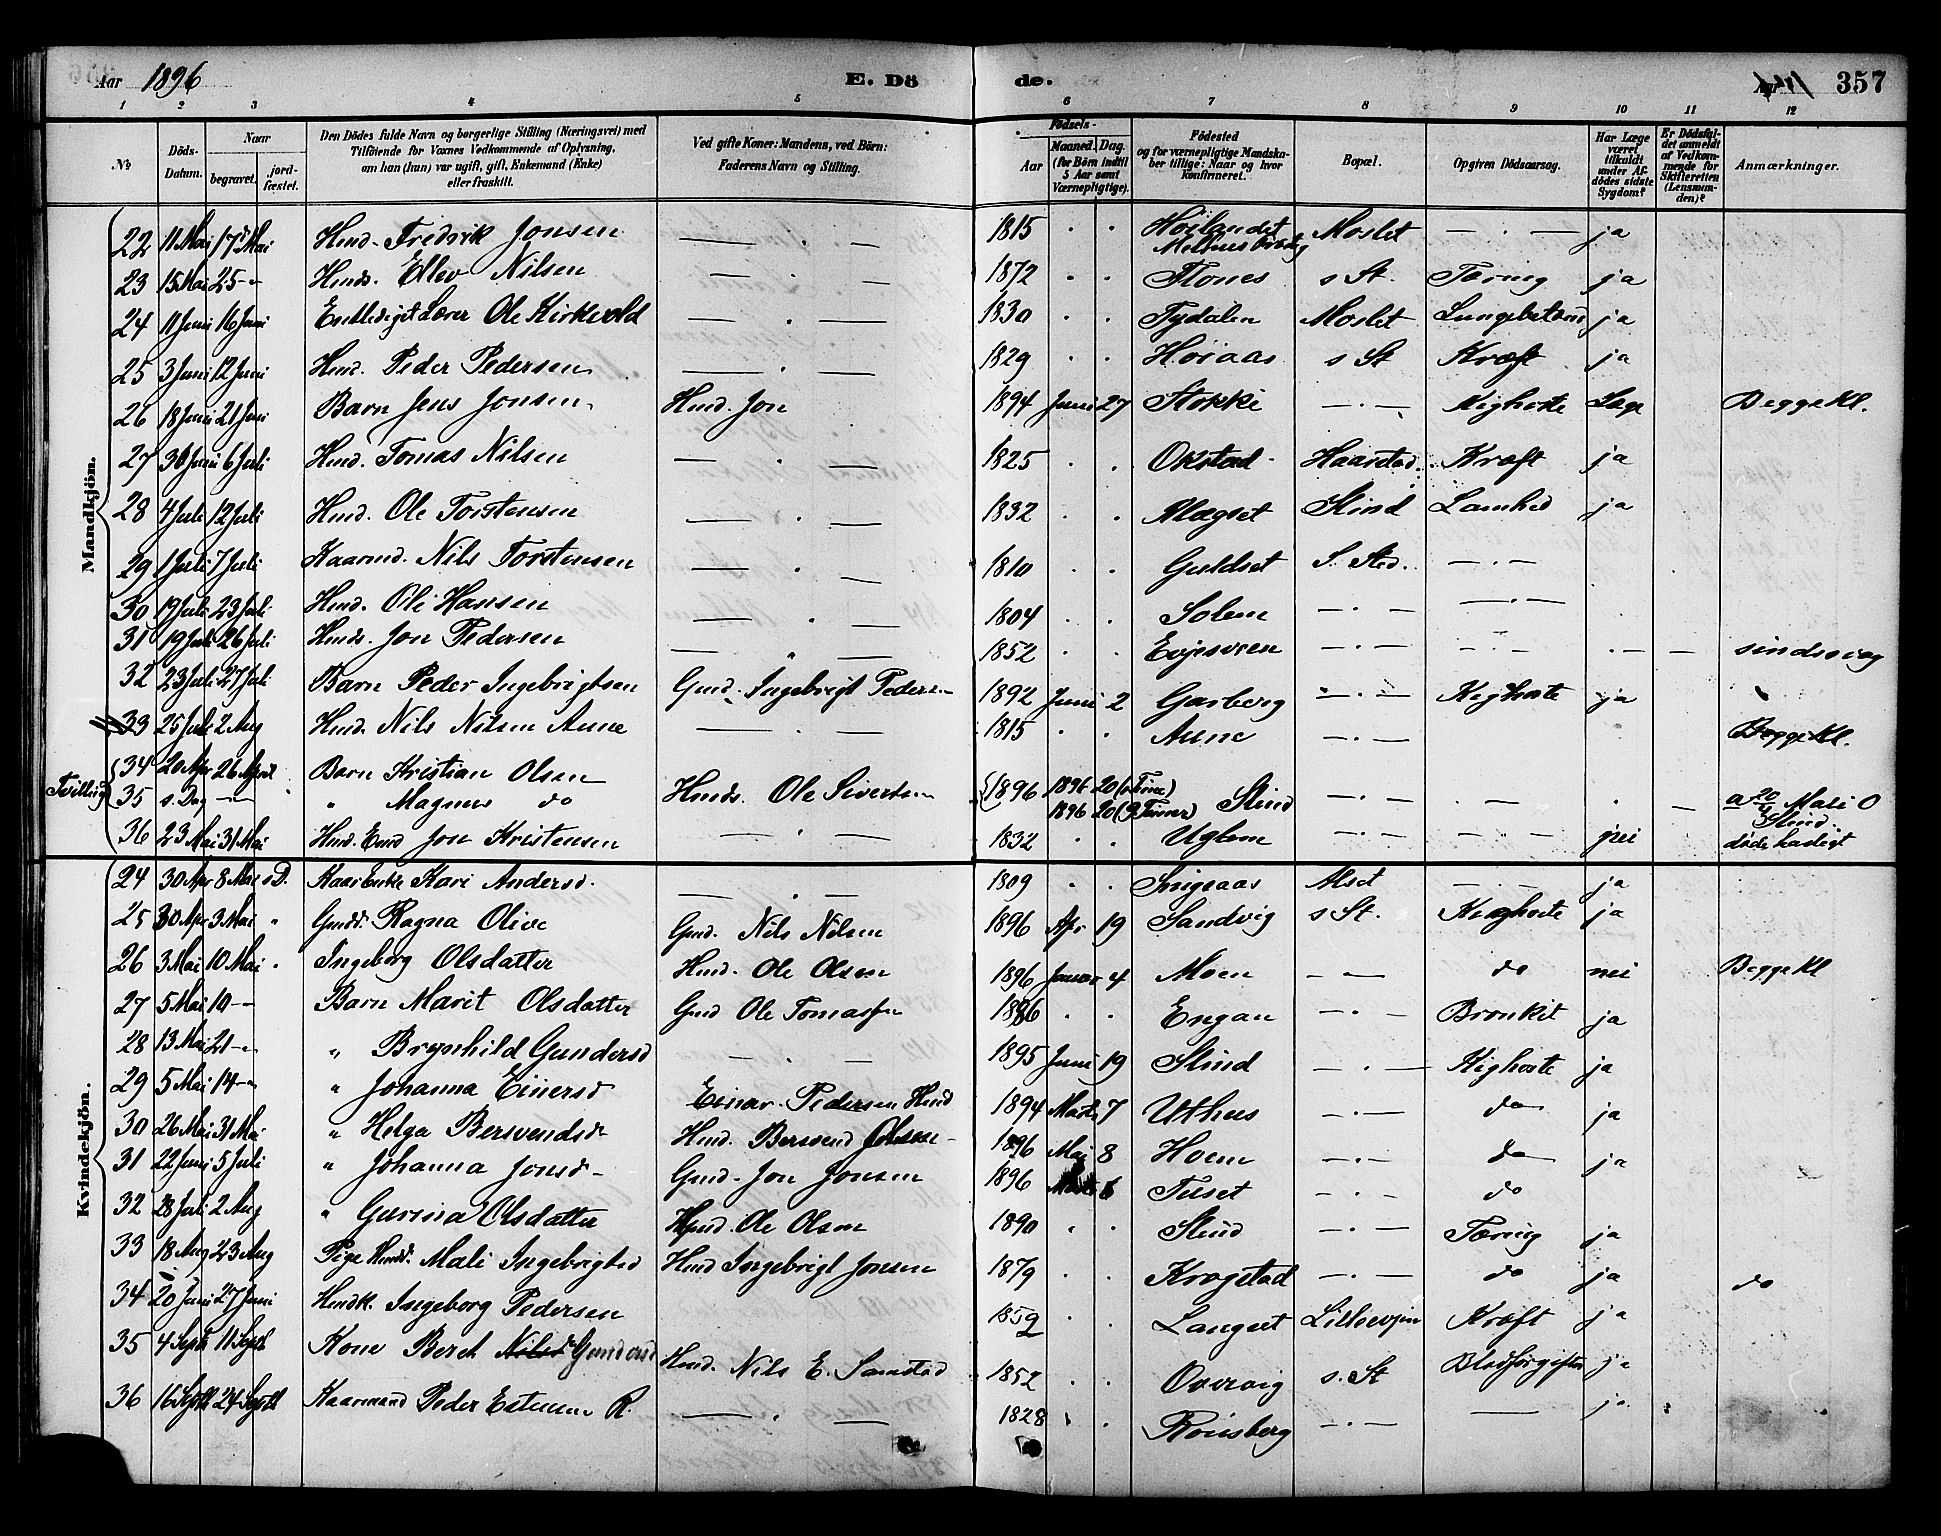 Aar 1896 E. Döde. 357
1 2 3 4 5 6 7 8 9 10 11 12
No
Döds-Datum.
Naar begravet. jordfæstet.
Den Dödes fulde Navn og borgerlige Stilling (Næringsvei) med Tilföiende for Voxnes Vedkommende af Oplysning, om han (hun) var ugift, gift, Enkemand (Enke) eller fraskilt.
Ved gifte Koner: Mandens, ved Börn: Faderens Navn og Stilling.
Födsels- Aar Maaned. Dag. (for Börn indtil 5 Aar samt Værnepligtige).
Födested og for værnepligtige Mandskaber tillige: Naar og hvor konfirmeret.
Bopæl.
Opgiven Dödsaarsag.
Har Læge været tilkaldt under Afdödes sidste Sygdom?
Er Dödsfaldet anmeldt af Vedkommende for Skifteretten (Lensmanden)?
Anmærkninger.
Mandkjön.
22 11 Mai 17 Mai Hmd. Fredrik Jonsen — . — 1815 . . Høilandet Moslet — . — ja
23 15 Mai 25 -"- Hmds. Ellev Nilsen — . — 1872 . . Flones s St. Tæring ja
24 11 Juni 16 Juni Entlediget Lærer Ole Kirkvold — . — 1830 . . Tydalen Moslet ja
25 3 Juni 12 Juni Hmd. Peder Pedersen — . — 1829 . . Høiaas s St Kræft ja
26 18 Juni 21 Juni Barn Jens Jonsen Hmd. Jon 1894 Juni 27 Stokke — . — Kighoste Læge Begge Kl.
27 30 Juni 6 Juli Hmd. Tomas Nilsen — . — 1825 . . Okstad Haarstad Kræft ja
28 4 Juli 12 Juli Hmd. Ole Torstensen — . — 1832 . . Alagset Slind Lamhed ja
29 1 Juli 7 Juli Kaarmd. Nils Torstensen — . — 1810 . . Guldset S. Sted. — . —
30 19 Juli 23 Juli Hmd. Ole Hansen — . — 1804 . . Solem — . — — . —
31 19 Juli 26 Juli Hmds. Jon Pedersen — . — 1852 . . — . — — . — . — — sindssvag
32 23 Juli 27 Juli Barn Peder Ingebrigtsen Gmd. Ingebrigt Pedersen 1892 Juni 2 Garberg — . — Kighoste ja
33 25 Juli 2 Aug Hmd. Nils Nilsen Aune — . — 1815 . . Aune — . — Begge Kl.
Tvilling
34 20 Apr 26 April Barn Kristian Olsen
35 s. Dag -"- " Magnus do Hmds. Ole Sivertsen 1896 1896 20 1896 20 (9 Timer) Slind — . — — . — . — Mali O Slind.
36 23 Mai 31 Mai Hmd. Emd Jon Kristensen — . — 1832 . . Uglem — . — — . — døde hastigt
Kvindekjön.
24 30 Apr 8 Mai s D. Kaar Enke Kari Andersd. — . — 1809 . . Snigsaas Alset — . — ja
25 30 Apr 3 Mai " Gmdd. Ragna Olive Gmd. Nils Nilsen 1896 Apr 19 Sandvig s St. Kighoste ja
26 3 Mai 10 Mai . Ingeborg Olsdatter Hmd. Ole Olsen 1896 Januar 4 Moen — — do nei Begge Kl
27 5 Mai 10 -"- Barn Marit Olsdatter Gmd Ole Tomassen 1886 . . Engan — . — Bronkit ja
28 13 Mai 21 -"- " Brynhild Gundersd — . — 1895 Juni 19 Slind — . — Kighoste ja
29 5 Mai 14 -"- " Johanna Einersd Einar Pedersen Hmd 1894 Marts 7 Uthus — . — do ja
30 26 Mai 31 Mai " Helga Bersvendsdr Hmd. Bersvend Johnsen 1896 Mai 8 Hoem — . — do ja
31 22 Juni 5 Juli " Johanna Jonsd Gmd. Jon Jonsen 1896 Marts 6 Tuset — . — do
32 28 Juli 2 Aug " Gurina Olsdatter Hmd. Ole Olsen 1890 " . Slind — . — Tæring ja
33 18 Aug 23 Aug Pige Hmdd. Mali Ingebrigtsd Hmd Ingebrigt Jonsen 1879 . . Krogstad — . — do ja do
34 20 Juni 27 Juni Hmdk. Ingeborg Pedersen 1859 . . Langset Lilleevjen Kræft ja
35 4 Septb 11 Septb Kone Beret Gundersd Hmd. Nils E. Samstad 1852 . . Overvig s. St Blodforgiftn ja
36 16 Septb 24 Septb Kaarmand Peder Estensen R. — . — 1828 . . Rønsberg — . — — ja